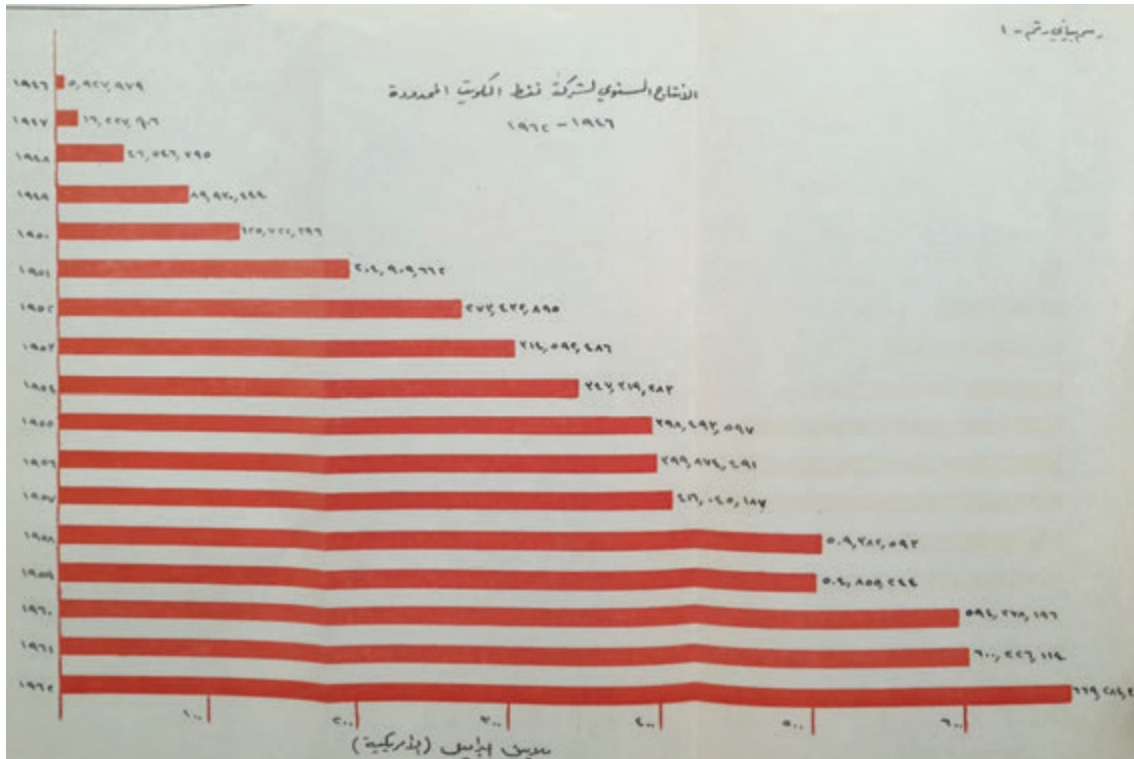 رسم بياني رقم - ١
الأنتاج السنوي لشركة نفط الكويت المحدودة
١٩٤٦ - ١٩٦٢
١٩٤٦ ٥,٩٢٧,٩٧٩
١٩٤٧
١٩٤٨ ٤٦,٥٤٦,٣٩٥
١٩٤٩
١٩٥٠ ١٢٥,٧٢٢,٢٩٦
١٩٥١ ٢٠٤,٩٠٩,٦٦٢
١٩٥٢ ٢٧٣,٤٣٣,٨٩٥
١٩٥٣ ٣١٤,٥٩٢,٤٨٦
١٩٥٤ ٣٤٧,٣١٩,٤٨٣
١٩٥٥ ٣٩٨,٤٩٣,٥٩٧
١٩٥٦ ٣٩٩,٨٧٤,٤٩١
١٩٥٧ ٤١٦,٠٤٥,١٨٧
١٩٥٨ ٥٠٩,٣٨٢,٥٩٣
١٩٥٩ ٥٠٤,٨٥٥,٣٤٤
١٩٦٠ ٥٩٤,٢٧٨,١٩٦
١٩٦١ ٦٠٠,٢٢٦,١١٤
١٩٦٢
١٠٠ ٢٠٠ ٣٠٠ ٤٠٠ ٥٠٠ ٦٠٠
ملايين البراميل (الأمريكية)